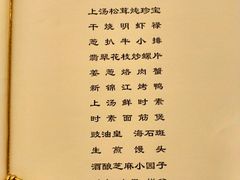 上汤松茸炖珍宝
干烧明虾禄
葱扒牛小排
翡翠花枝炒螺片
姜葱焗肉蟹
新锦江烤鸭
上汤鲜时素
时素面筋煲
豉油皇海石斑
生煎馒头
酒酿芝麻小园子